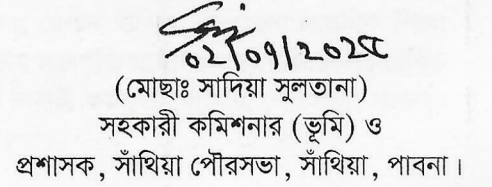 ০২/০৭/২০২৫
(মোছাঃ সাদিয়া সুলতানা)
সহকারী কমিশনার (ভূমি) ও
প্রশাসক, সাঁথিয়া পৌরসভা, সাঁথিয়া, পাবনা।